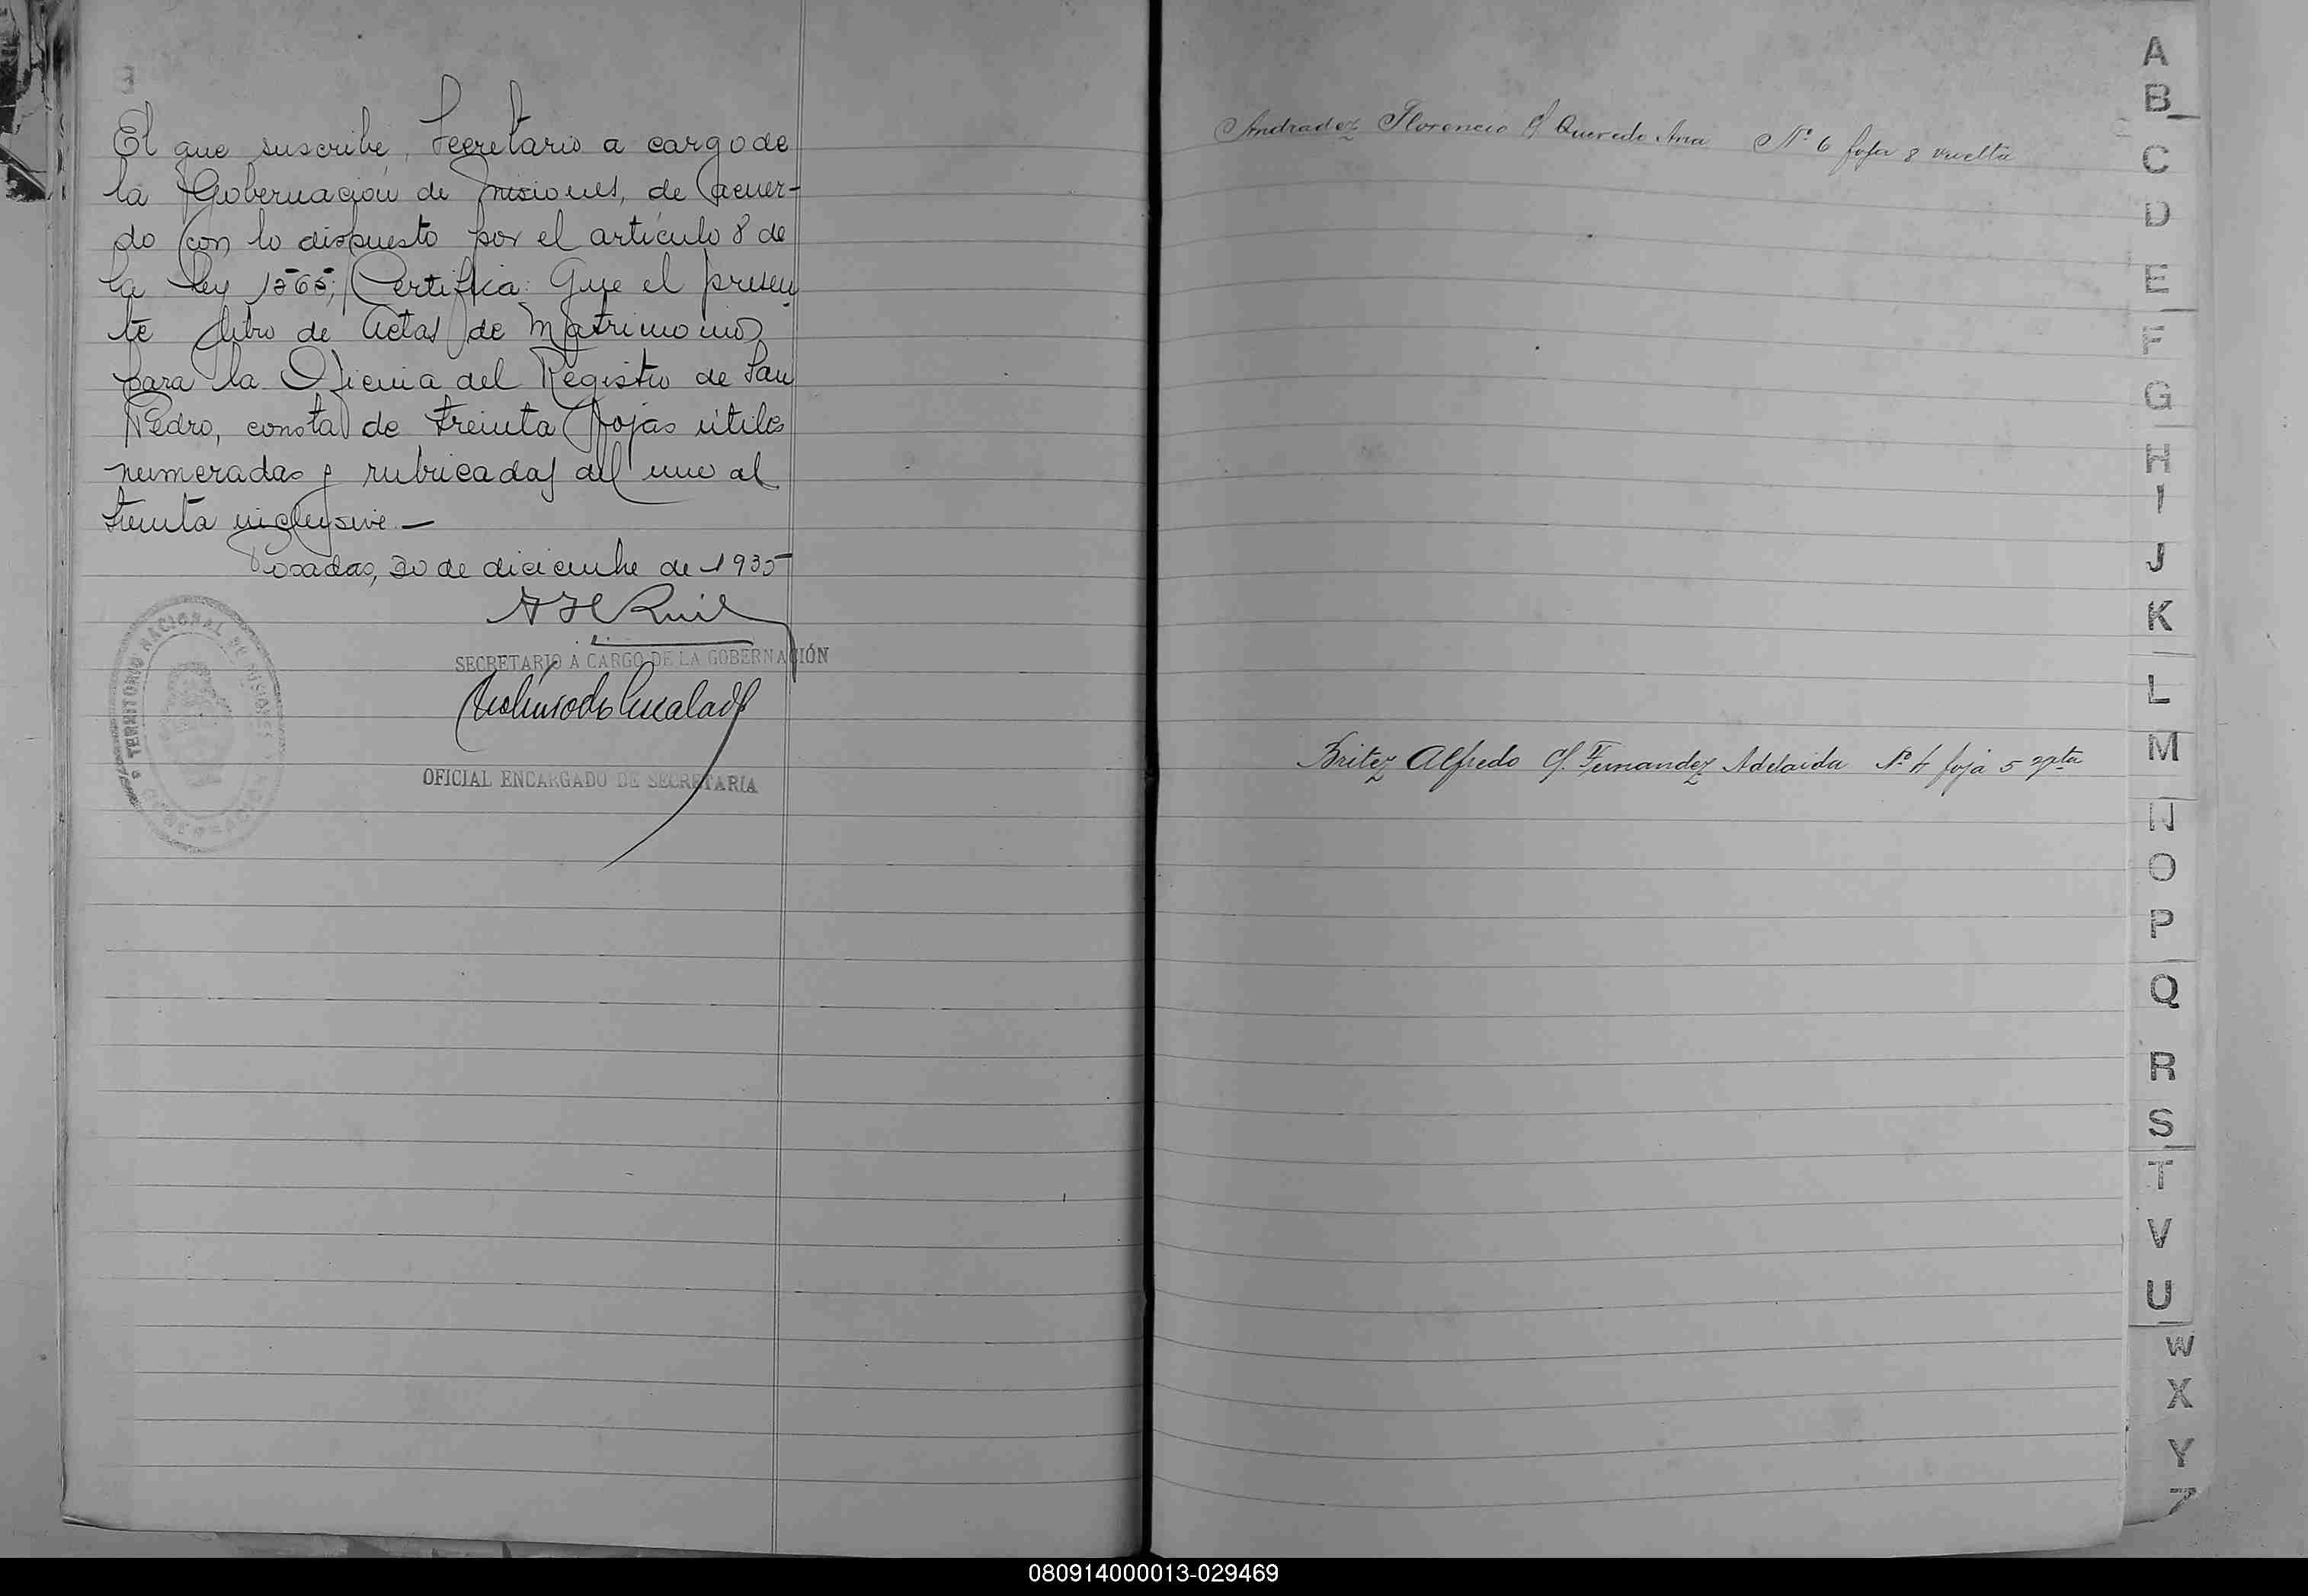 El que suscribe, Secretario a cargo de
la Gobernación de Misiones, de acuer-
do con lo dispuesto por el artículo 8 de
la Ley 1565; Certifica: Que el presen-
te libro de Actas de Matrimonios
para la Oficina del Registro de San
Pedro, consta de treinta fojas útiles
numeradas y rubricadas del uno al
treinta inclusive.—
Posadas, 20 de diciembre de 1935
SECRETARIO A CARGO DE LA GOBERNACIÓN
OFICIAL ENCARGADO DE SECRETARIA
TERRITORIO NACIONAL DE MISIONES
GOBERNACION
Andradez Florencio c/ Quevedo Ana Nº 6 foja 8 vuelta
Britez Alfredo c/. Fernandez Adelaida Nº 4 foja 5 vta
A
B
C
D
E
F
G
H
I
J
K
L
M
N
O
P
Q
R
S
T
V
U
W
X
Y
Z
080914000013-029469